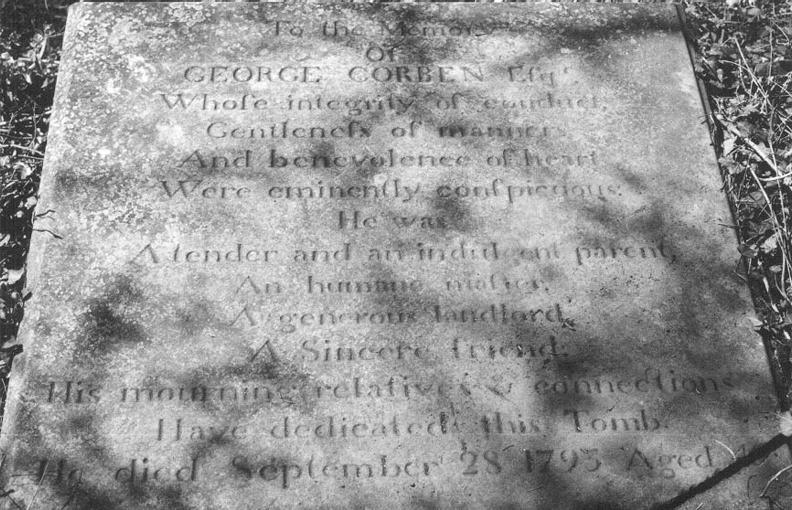 To the Memory
Of
GEORGE CORBEN Esqr.
Whoſe integrity of conduct,
Gentleneſs of manners
And benevolence of heart
Were eminently conſpicuous.
He was
A tender and an indulgent parent,
An humane maſter,
A generous landlord,
A Sincere friend.
His mourning relatives & connections
Have dedicated this Tomb.
He died September 28 1793 Aged